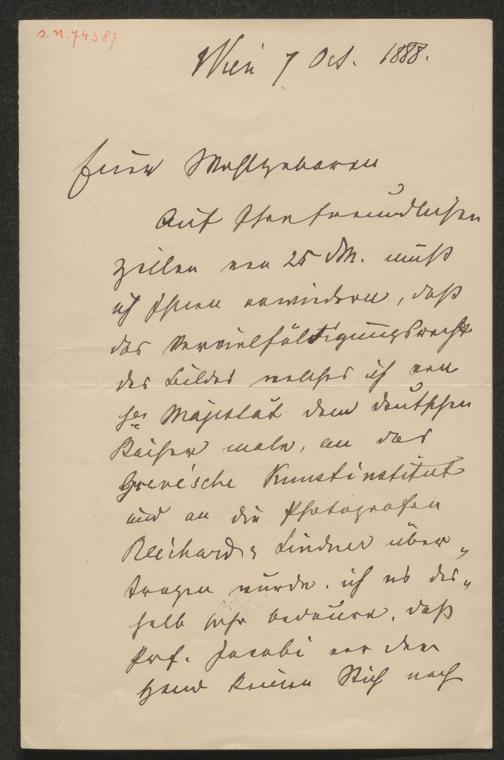 s.n. 74381
Wien 7 Oct. 1888.
Euer Wohlgeboren
Auf Ihre freundlichen
Zeilen von 25 M. muß
ich Ihnen erwiedern, daß
das Vervielfältigungsrecht
des Bildes welches ich von
Sr Majestät dem deutschen
Kaiser male, an das
Greve'sche Kunstinstitut
und an die Photografen
Reichard & Lindner über„
tragen wurde. ich es des„
halb sehr bedaure, daß
Prof. Jacobi vor der
Hand keinen Stich nach